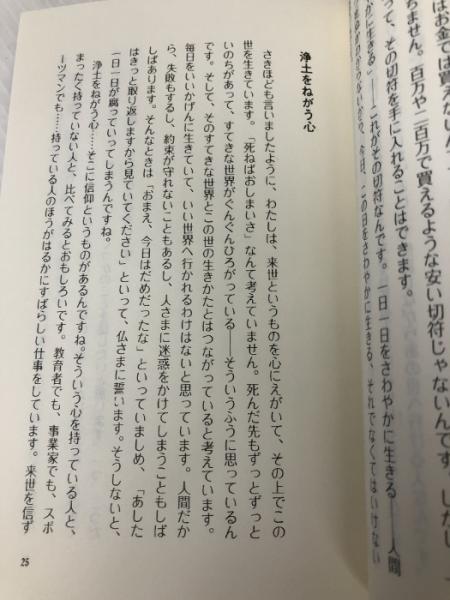 はお金では買えないんで
ちません。百万や二百万で買えるような安い切符じゃないんです。しかし
って、その切符を手に入れることはできます。
かに生きる」――これがその切符なんです。一日一日をさわやかに生きる――人間
今日、この日をさわやかに生きる、それでなくてはいけない
浄土をねがう心
さきほども言いましたように、わたしは、来世というものを心にえがいて、その上でこの
世を生きています。「死ねばおしまいさ」なんて考えていません。死んだ先もずっとずっと
いのちがあって、すてきな世界がぐんぐんひろがっている――そういうふうに思っているん
です。そして、そのすてきな世界とこの世の生きかたとはつながっていると考えています。
毎日をいいかげんに生きていて、いい世界へ行かれるわけはないと思っています。人間だか
ら、失敗もするし、約束が守れないこともあるし、人さまに迷惑をかけてしまうこともしば
しばあります。そんなときは「おまえ、今日はだめだったな」といっていましめ、「あした
はきっと取り返しますから見ていてください」といって、仏さまに誓います。そうしないと、
一日一日が腐っていってしまうんですね。
浄土をねがう心……そこに信仰というものがあるんですね。そういう心を持っている人と、
まったく持っていない人と、比べてみるとおもしろいです。教育者でも、事業家でも、スポ
ーツマンでも……持っている人のほうがはるかにすばらしい仕事をしています。来世を信ず
25